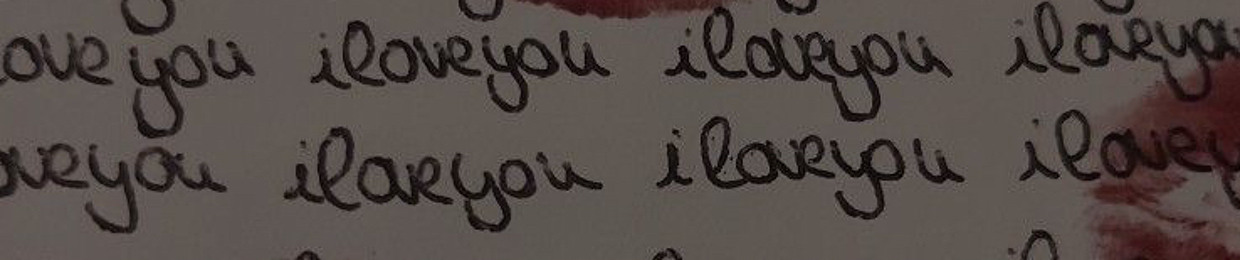 oveyou iloveyou iloveyou iloveyou
oveyou iloveyou iloveyou ilovey